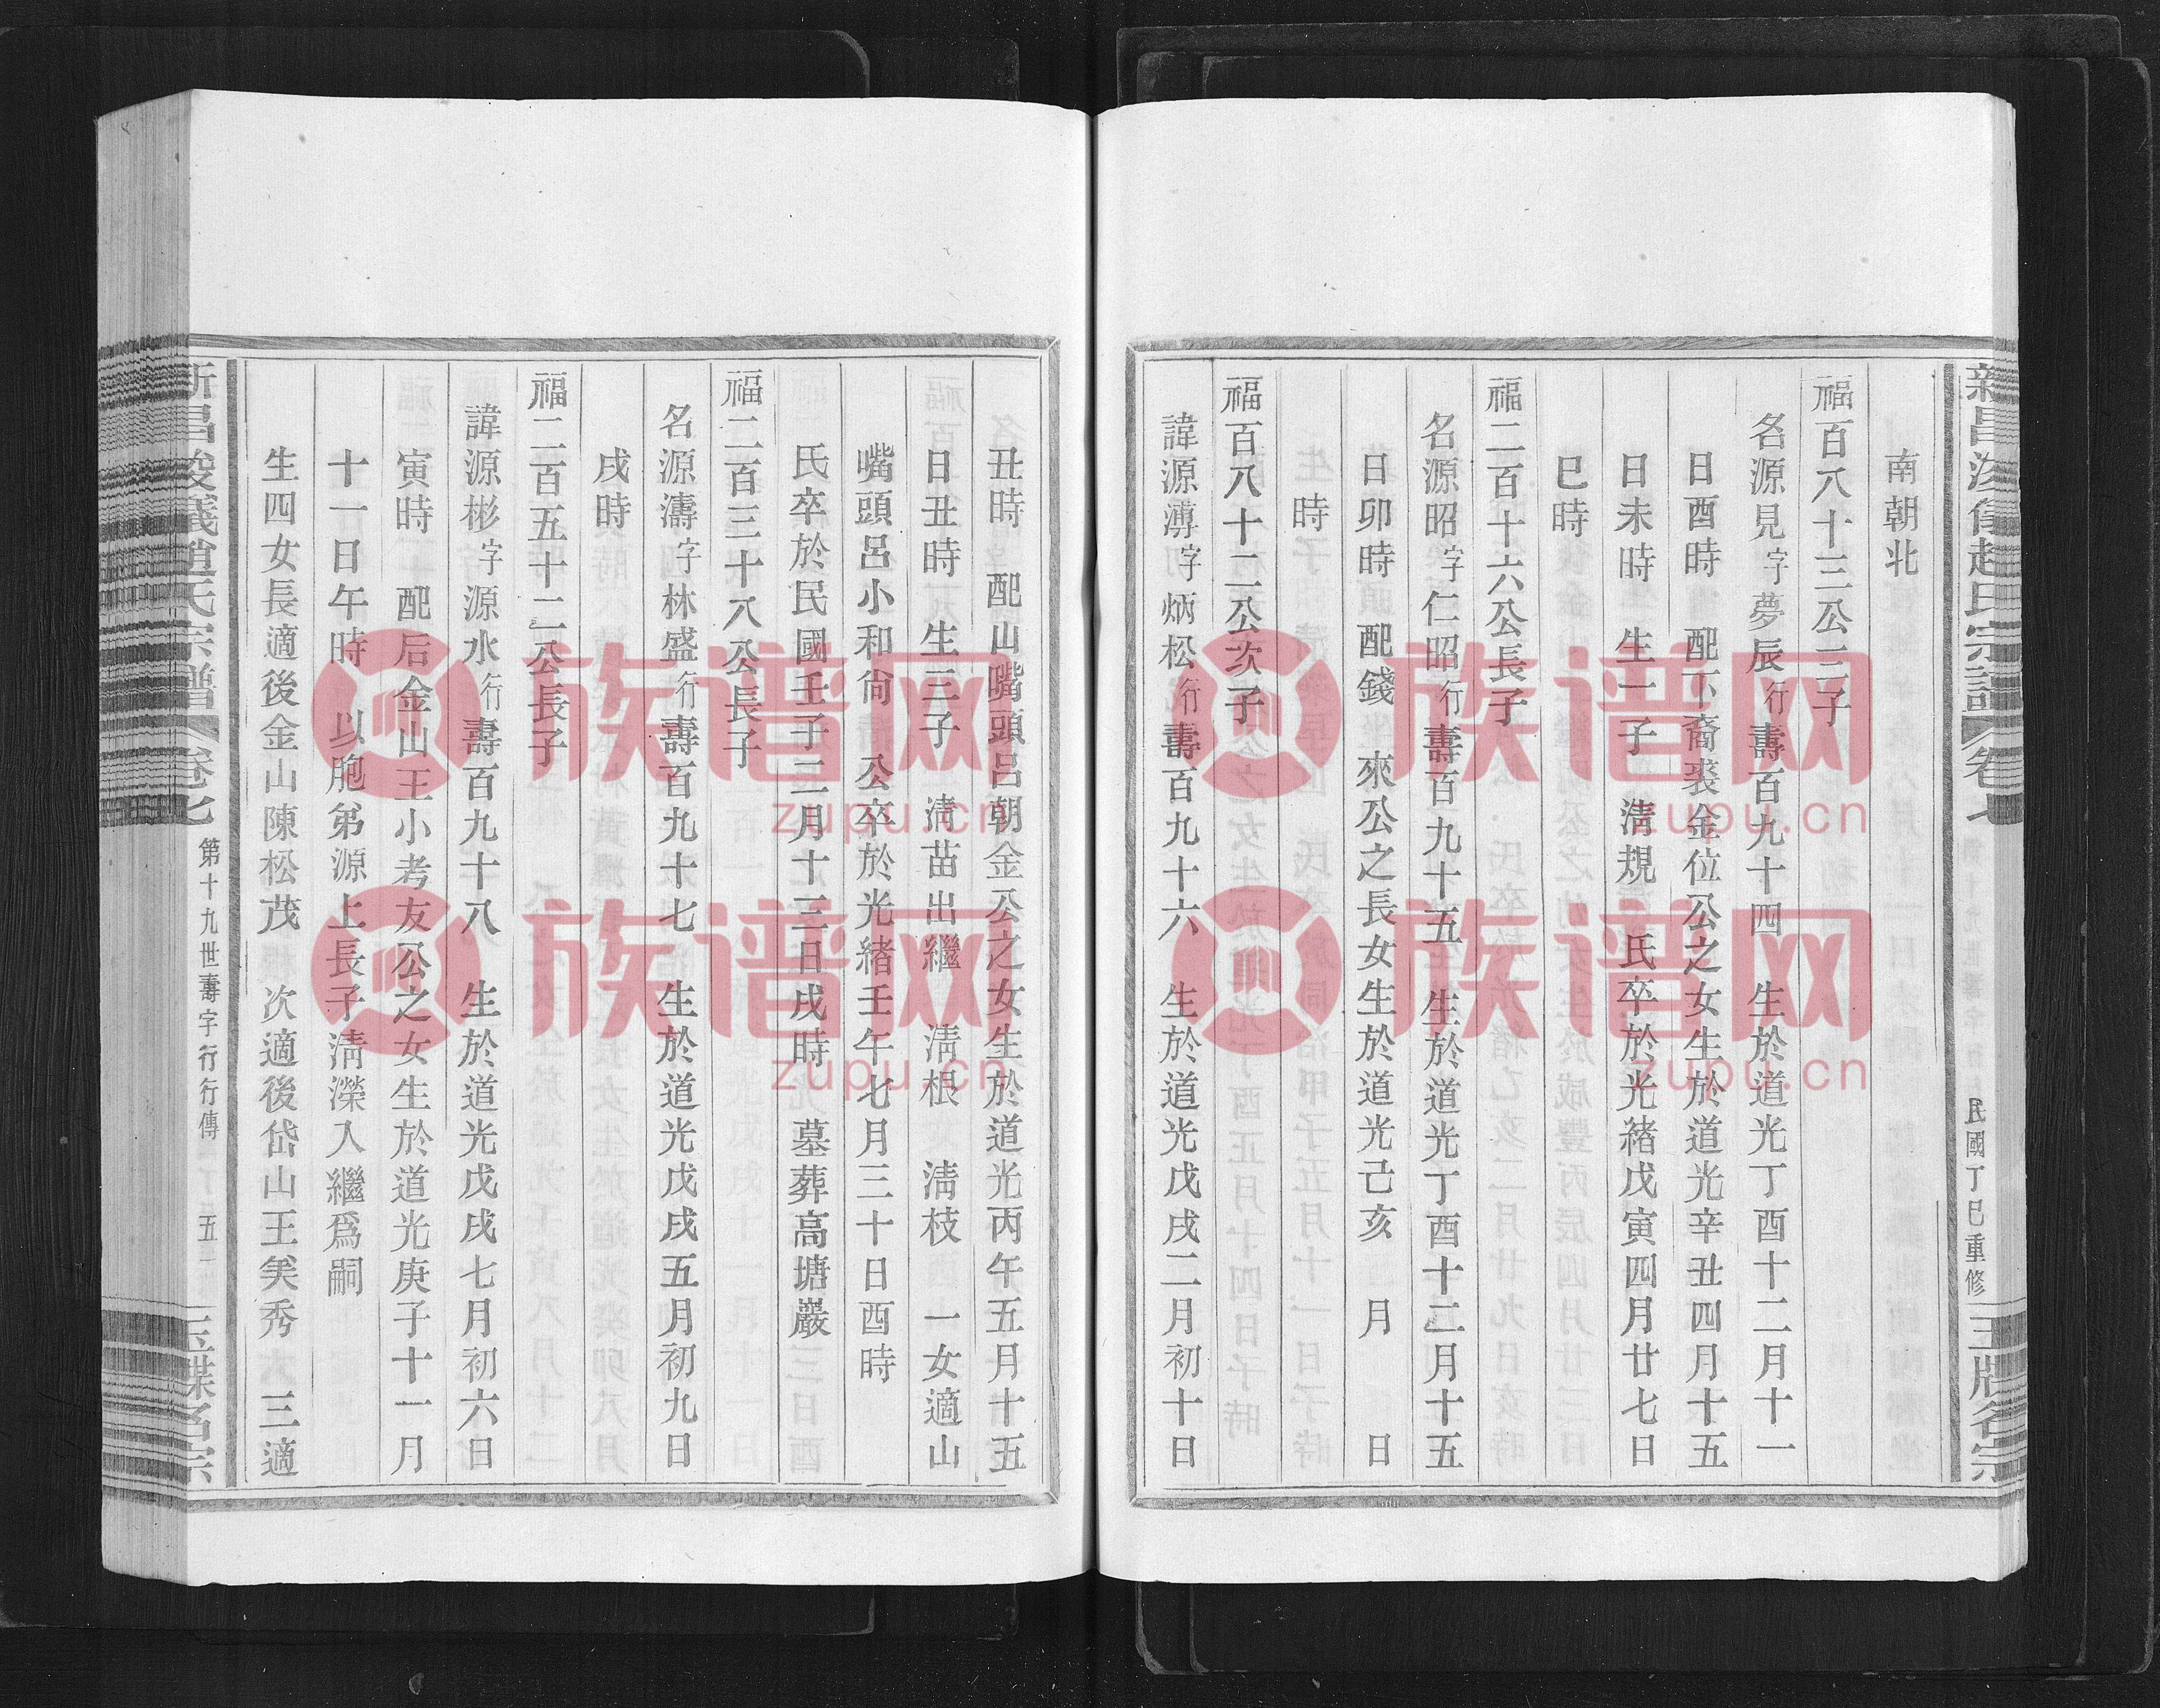 民國丁巳重修
南朝北
福百八十三公三子
名源見字夢辰行壽百九十四 生於道光丁酉十二月十一
日酉時 配下裔裘金位公之女生於道光辛丑四月十五
日未時 生一子 淸規 氏卒於光緒戊寅四月廿七日
巳時
福二百十六公長子
名源昭字仁昭行壽百九十五 生於道光丁酉十二月十五
日卯時 配錢 來公之長女生於道光己亥 月 日
時
福百八十二公次子
諱源溥字炳松行壽百九十六 生於道光戊戌二月初十日
丑時 配山嘴頭呂朝金公之女生於道光丙午五月十五
日丑時 生三子 淸苗出繼 淸根 淸枝 一女適山
嘴頭呂小和尙 公卒於光緒壬午七月三十日酉時
氏卒於民國壬子二月十三日戌時 墓葬高塘巖
福二百三十八公長子
名源濤字林盛行壽百九十七 生於道光戊戌五月初九日
戌時
福二百五十二公長子
諱源彬字源水行壽百九十八 生於道光戊戌七月初六日
寅時 配后金山王小考友公之女生於道光庚子十一月
十一日午時 以胞弟源上長子淸濚入繼爲嗣
生四女長適後金山陳松茂 次適後岱山王美秀 三適
卷七 第十九世壽字行行傳 五
族谱网
zupu.cn
族谱网
zupu.cn
族谱网
zupu.cn
族谱网
zupu.cn